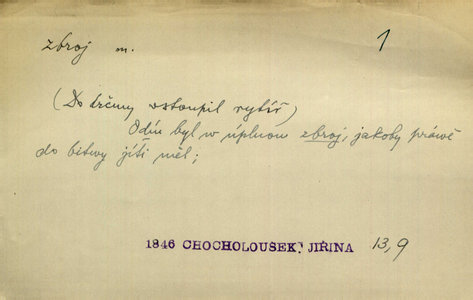 zbroj m. 1
(Do krčmy wstoupil rytíř)
Oděn byl w úplnou zbroj, jakoby práwě
do bitwy jíti měl;
1846 CHOCHOLOUŠEK, JIŘINA 13,9